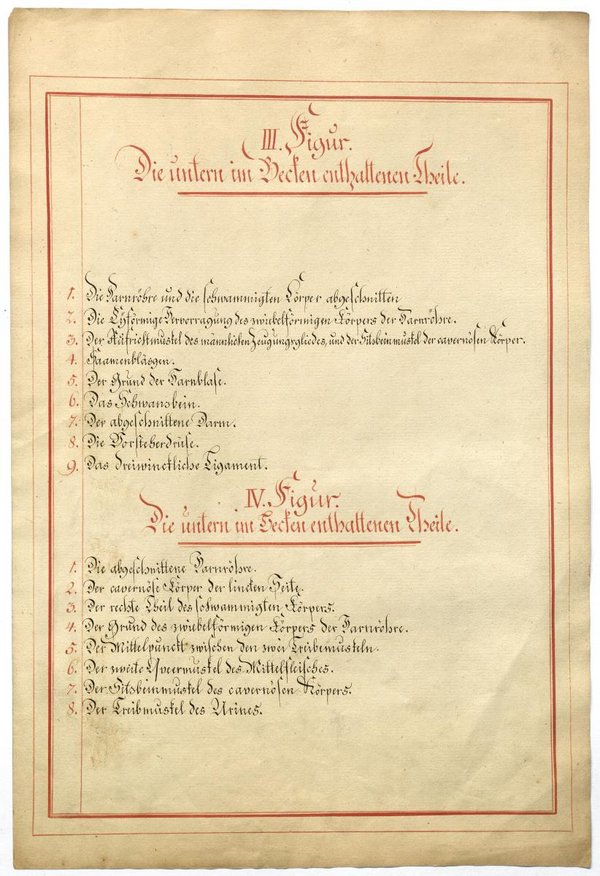 III. Figur.
Die untern im Becken enthaltenen Theile.
1. Die Harnröhre und die schwammigten Körper abgeschnitten
2. Die Eyförmige Hervorragung des zwiebelförmigen Körpers der Harnröhre.
3. Der Aufrichtmuskel des mannlichen Zeugungsgliedes, und der Sitsbeinmuskel der cavernösen Körper.
4. Saamenbläsgen.
5. Der Grund der Harnblase.
6. Das Schwansbein.
7. Der abgeschnittene Darm.
8. Die Vorsteherdrüse.
9. Das dreiwinckliche Ligament.
IV. Figur.
Die untern im Becken enthaltenen Theile.
1. Die abgeschnittene Harnröhre.
2. Der cavernöse Körper der lincken Seite.
3. Der rechte Theil des schwammigten Körpers.
4. Der Grund des zwiebelförmigen Körpers der Harnröhre.
5. Der Mittelpunckt zwischen den zwei Treibemuskeln.
6. Der zweite Queermuskel des Mittelfleisches.
7. Der Sitsbeinmuskel des cavernösen Körpers.
8. Der Treibmuskel des Urines.